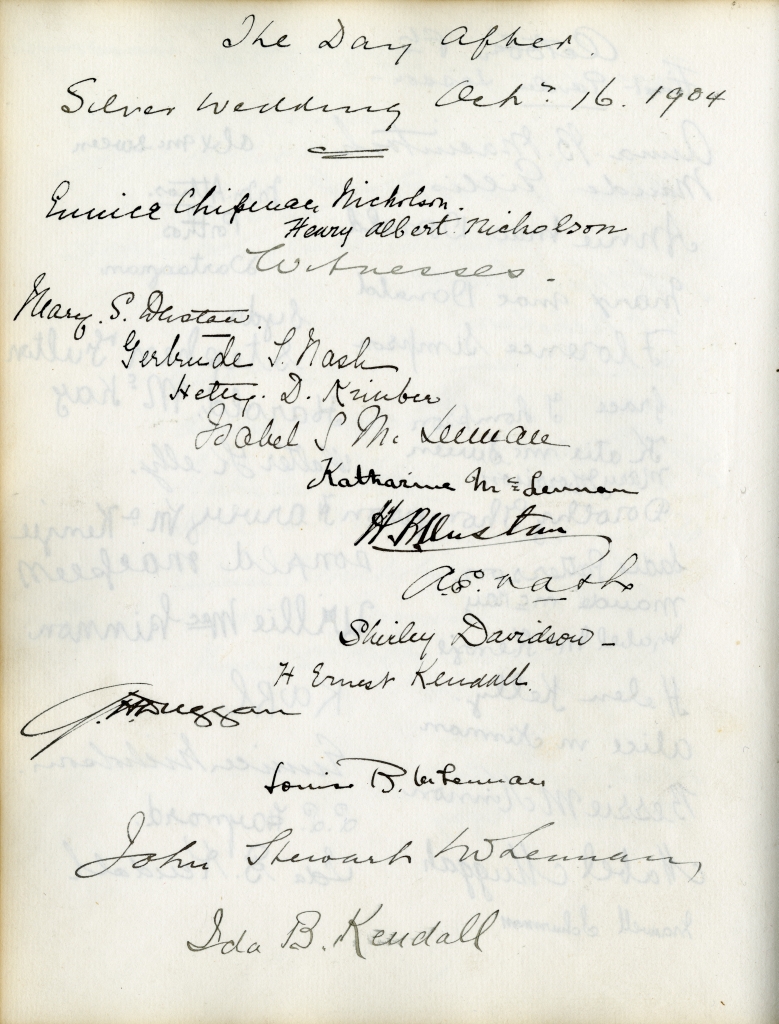 The Day After.
Silver Wedding Oct. 16. 1904
Eunice Chipman Nicholson.
Henry Albert Nicholson
Witnesses.
Mary. S. Dustan.
Gertrude S. Nash
Hetty. D. Kimber
Isabel S Mc Lennan
Katharine McLennan
H. R. Dustan
A. E. Nash
Shirley Davidson -
H Ernest Kendall.
G. H. Duggan
Louise B. McLennan
John Stewart McLennan
Ida B. Kendall